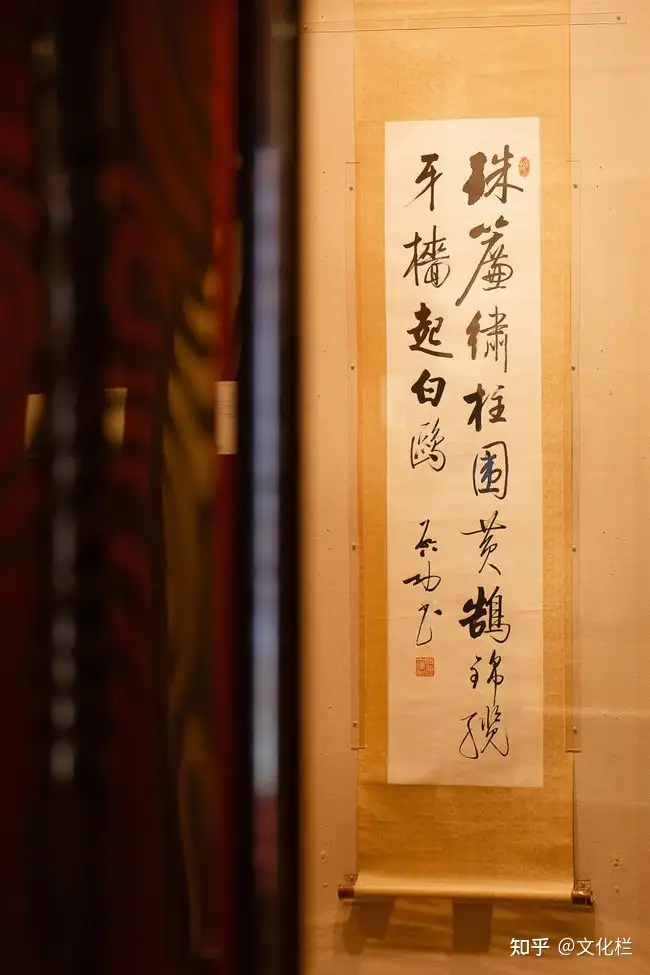 珠簾繡柱圍黃鵠錦纜
牙檣起白鷗
启功书
知乎 @文化栏